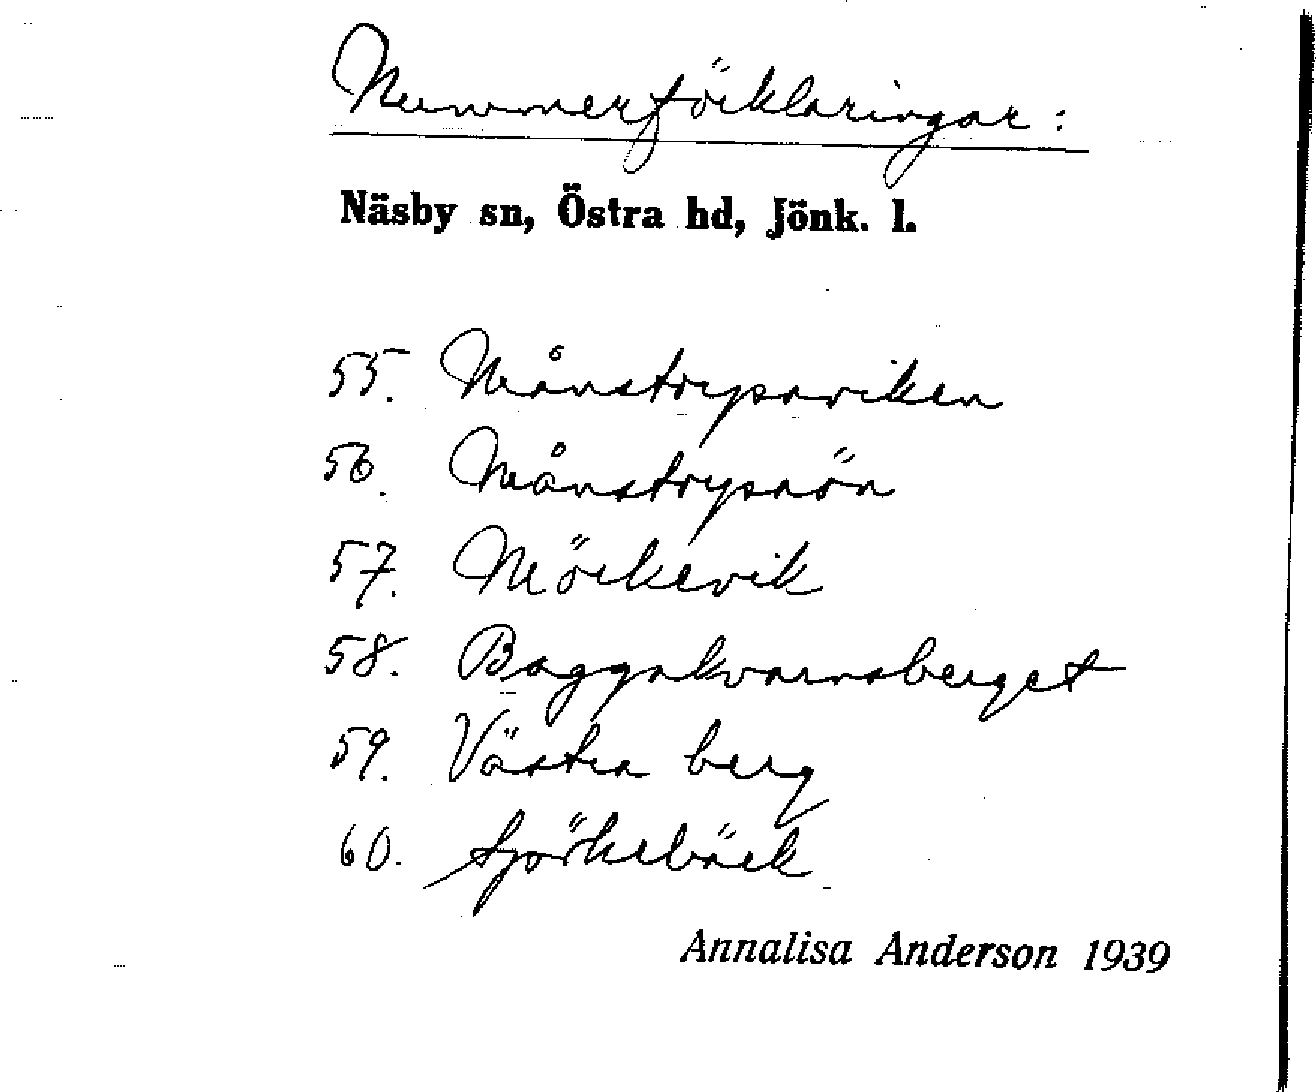 Nummerförklaringar:
Näsby sn, Östra hd, Jönk. l.
55. Månstrypareviken
56. Månstrypsön
57. Mörkevik
58. Baggakvarnsberget
59. Västra berg
60.
Annalisa Anderson 1939